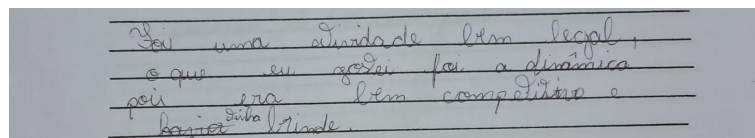 Foi uma atividade bem legal,
o que eu gostei foi a dinâmica
pois era bem competitivo e
tinha brinde.